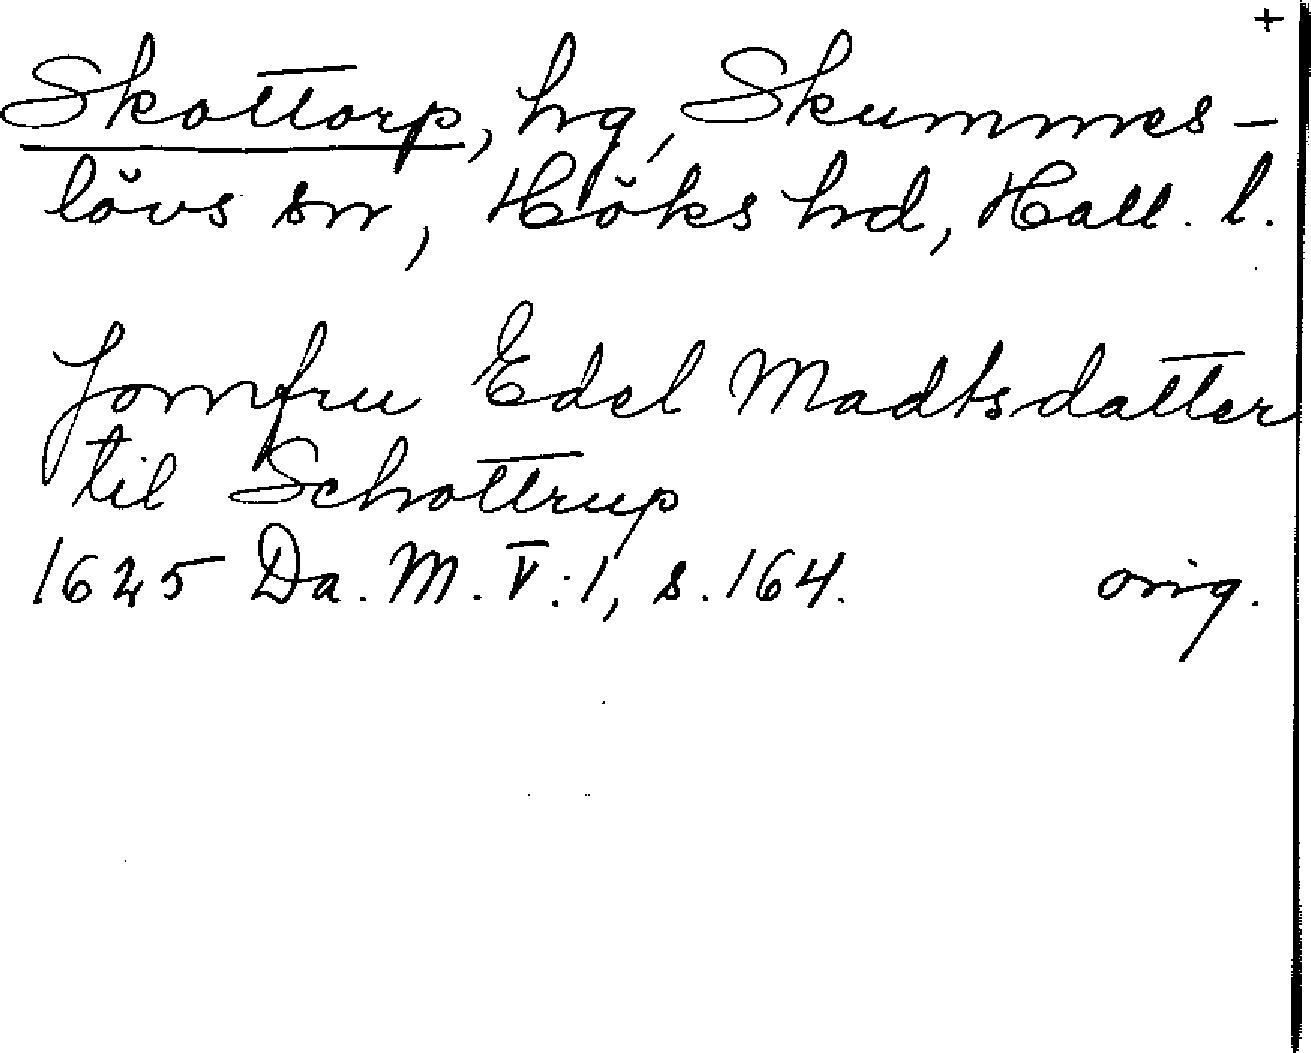 +
Skottorp, hg, Skummes-
lövs sn, Höks hd, Hall. l.
Jomfru Edel Madtsdatter
til Schottrup
1625 Da. M. V:1, s. 164. orig.